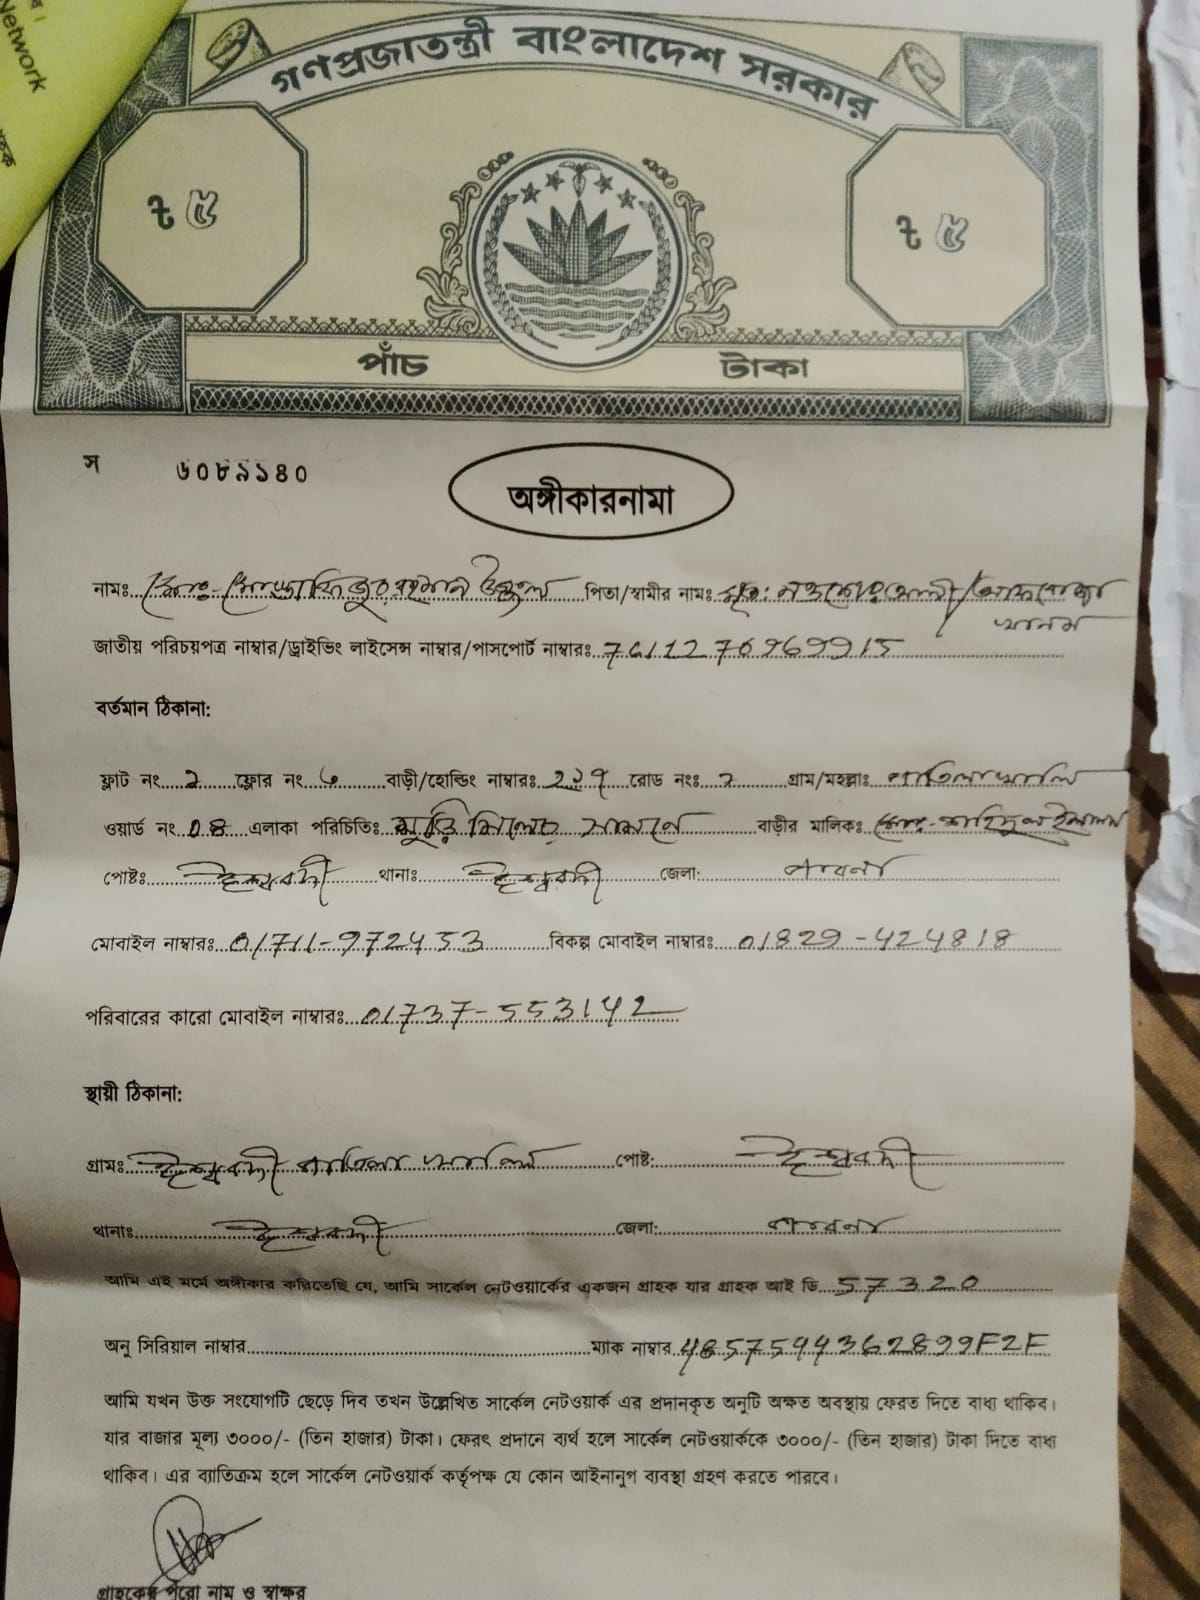 Network
গণপ্রজাতন্ত্রী বাংলাদেশ সরকার
৳ ৫
৳ ৫
পাঁচ টাকা
স ৬০৮৯১৪০
অঙ্গীকারনামা
নামঃ মোঃ- মোস্তাফিজুর রহমান উজ্জ্বল পিতা/স্বামীর নামঃ মৃত: নওশের আলী/আফরোজা
খানম
জাতীয় পরিচয়পত্র নাম্বার/ড্রাইভিং লাইসেন্স নাম্বার/পাসপোর্ট নাম্বারঃ
বর্তমান ঠিকানা:
ফ্লাট নং ২ ফ্লোর নং ৬ বাড়ী/হোল্ডিং নাম্বারঃ রোড নংঃ ২ গ্রাম/মহল্লাঃ পাতিলাখালি
ওয়ার্ড নং 08 এলাকা পরিচিতিঃ মুড়ি মিলের সামনে বাড়ীর মালিকঃ মোঃ-শহিদুল ইসলাম
পোষ্টঃ ঈশ্বরদী থানাঃ ঈশ্বরদী জেলা: পাবনা
মোবাইল নাম্বারঃ 01711-972453 বিকল্প মোবাইল নাম্বারঃ 01829-424818
পরিবারের কারো মোবাইল নাম্বারঃ 01737-553142
স্থায়ী ঠিকানা:
গ্রামঃ ঈশ্বরদী পাতিলা খালি পোষ্ট: ঈশ্বরদী
থানাঃ ঈশ্বরদী জেলা: পাবনা
আমি এই মর্মে অঙ্গীকার করিতেছি যে, আমি সার্কেল নেটওয়ার্কের একজন গ্রাহক যার গ্রাহক আই ডি 57320
অনু সিরিয়াল নাম্বার ম্যাক নাম্বার 4857544362899F2F
আমি যখন উক্ত সংযোগটি ছেড়ে দিব তখন উল্লেখিত সার্কেল নেটওয়ার্ক এর প্রদানকৃত অনুটি অক্ষত অবস্থায় ফেরত দিতে বাধ্য থাকিব।
যার বাজার মূল্য ৩০০০/- (তিন হাজার) টাকা। ফেরৎ প্রদানে ব্যর্থ হলে সার্কেল নেটওয়ার্ককে ৩০০০/- (তিন হাজার) টাকা দিতে বাধ্য
থাকিব। এর ব্যাতিক্রম হলে সার্কেল নেটওয়ার্ক কর্তৃপক্ষ যে কোন আইনানুগ ব্যবস্থা গ্রহণ করতে পারবে।
গ্রাহকের পুরো নাম ও স্বাক্ষর